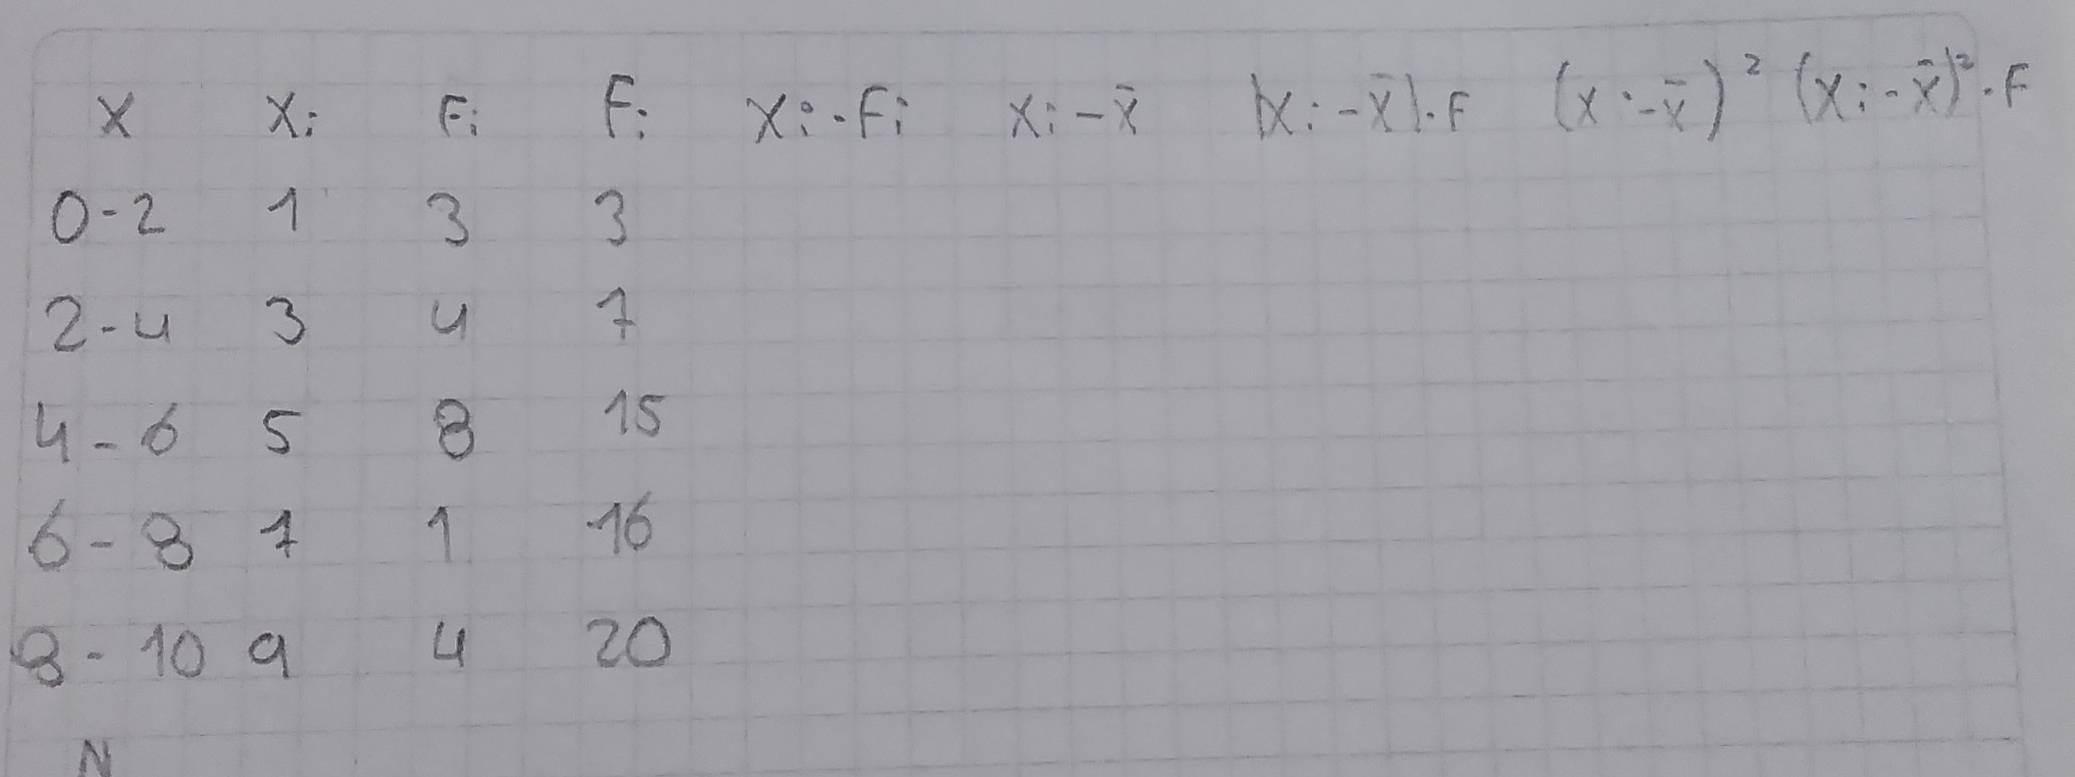 X Xi Fi Fi Xi·Fi Xi-x̄ |Xi-x̄|·F (xi-x̄)² (xi-x̄)²·F
0-2 1 3 3
2-4 3 4 7
4-6 5 8 15
6-8 7 1 16
8-10 9 4 20
N